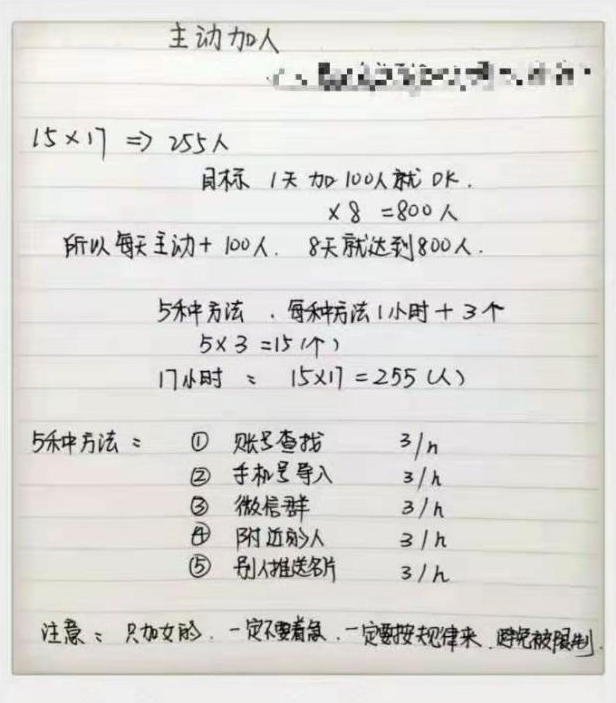 主动加人
15×17 => 255人
目标 1天加100人就OK.
×8 =800人
所以每天主动+100人. 8天就达到800人.
5种方法 . 每种方法1小时+3个
5×3=15(个)
17小时: 15×17=255(人)
5种方法: ① 账号查找 3/h
② 手机号导入 3/h
③ 微信群 3/h
④ 附近的人 3/h
⑤ 别人推送名片 3/h
注意: 只加女的. 一定不要着急. 一定要按规律来. 避免被限制.